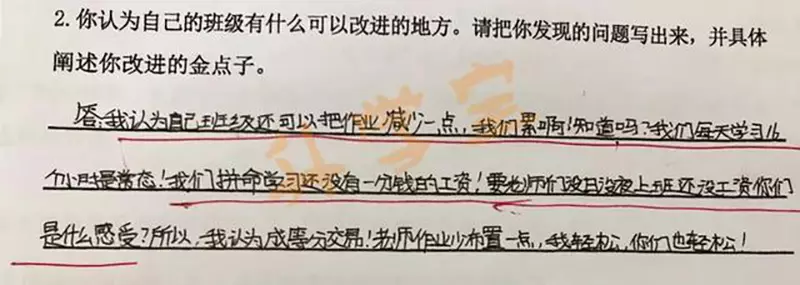 2. 你认为自己的班级有什么可以改进的地方。请把你发现的问题写出来，并具体
阐述你改进的金点子。
答：我认为自己班级还可以把作业减少一点，我们累啊！知道吗？我们每天学习16
个小时是常态！我们拼命学习还没有一分钱的工资！要老师们没日没夜上班还没工资你们
是什么感受？所以，我认为成等分交易！老师作业少布置一点，我轻松，你们也轻松！